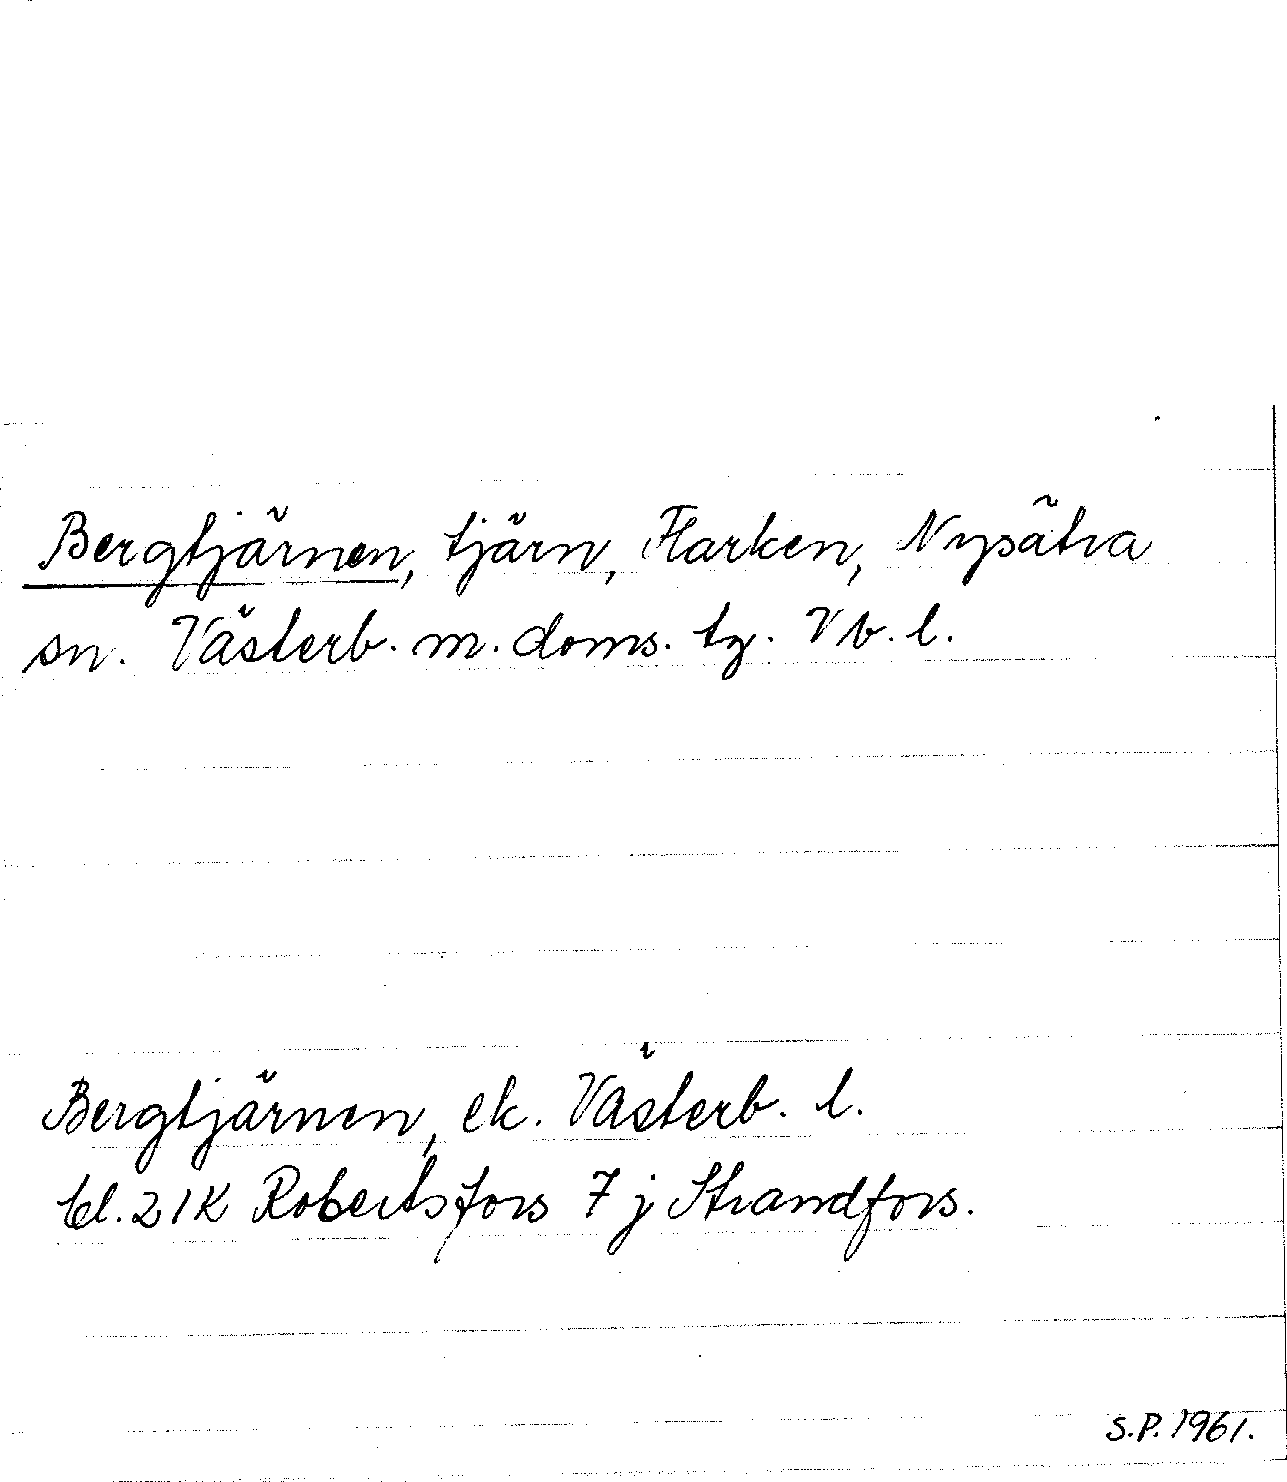 Bergtjärnen, tjärn, Flarken, Nysätra
sn. Västerb. m. doms. tg. Vb. l.
Bergtjärnen, ek. Västerb. l.
bl. 21K Robertsfors 7 j Strandfors.
S.P. 1961.